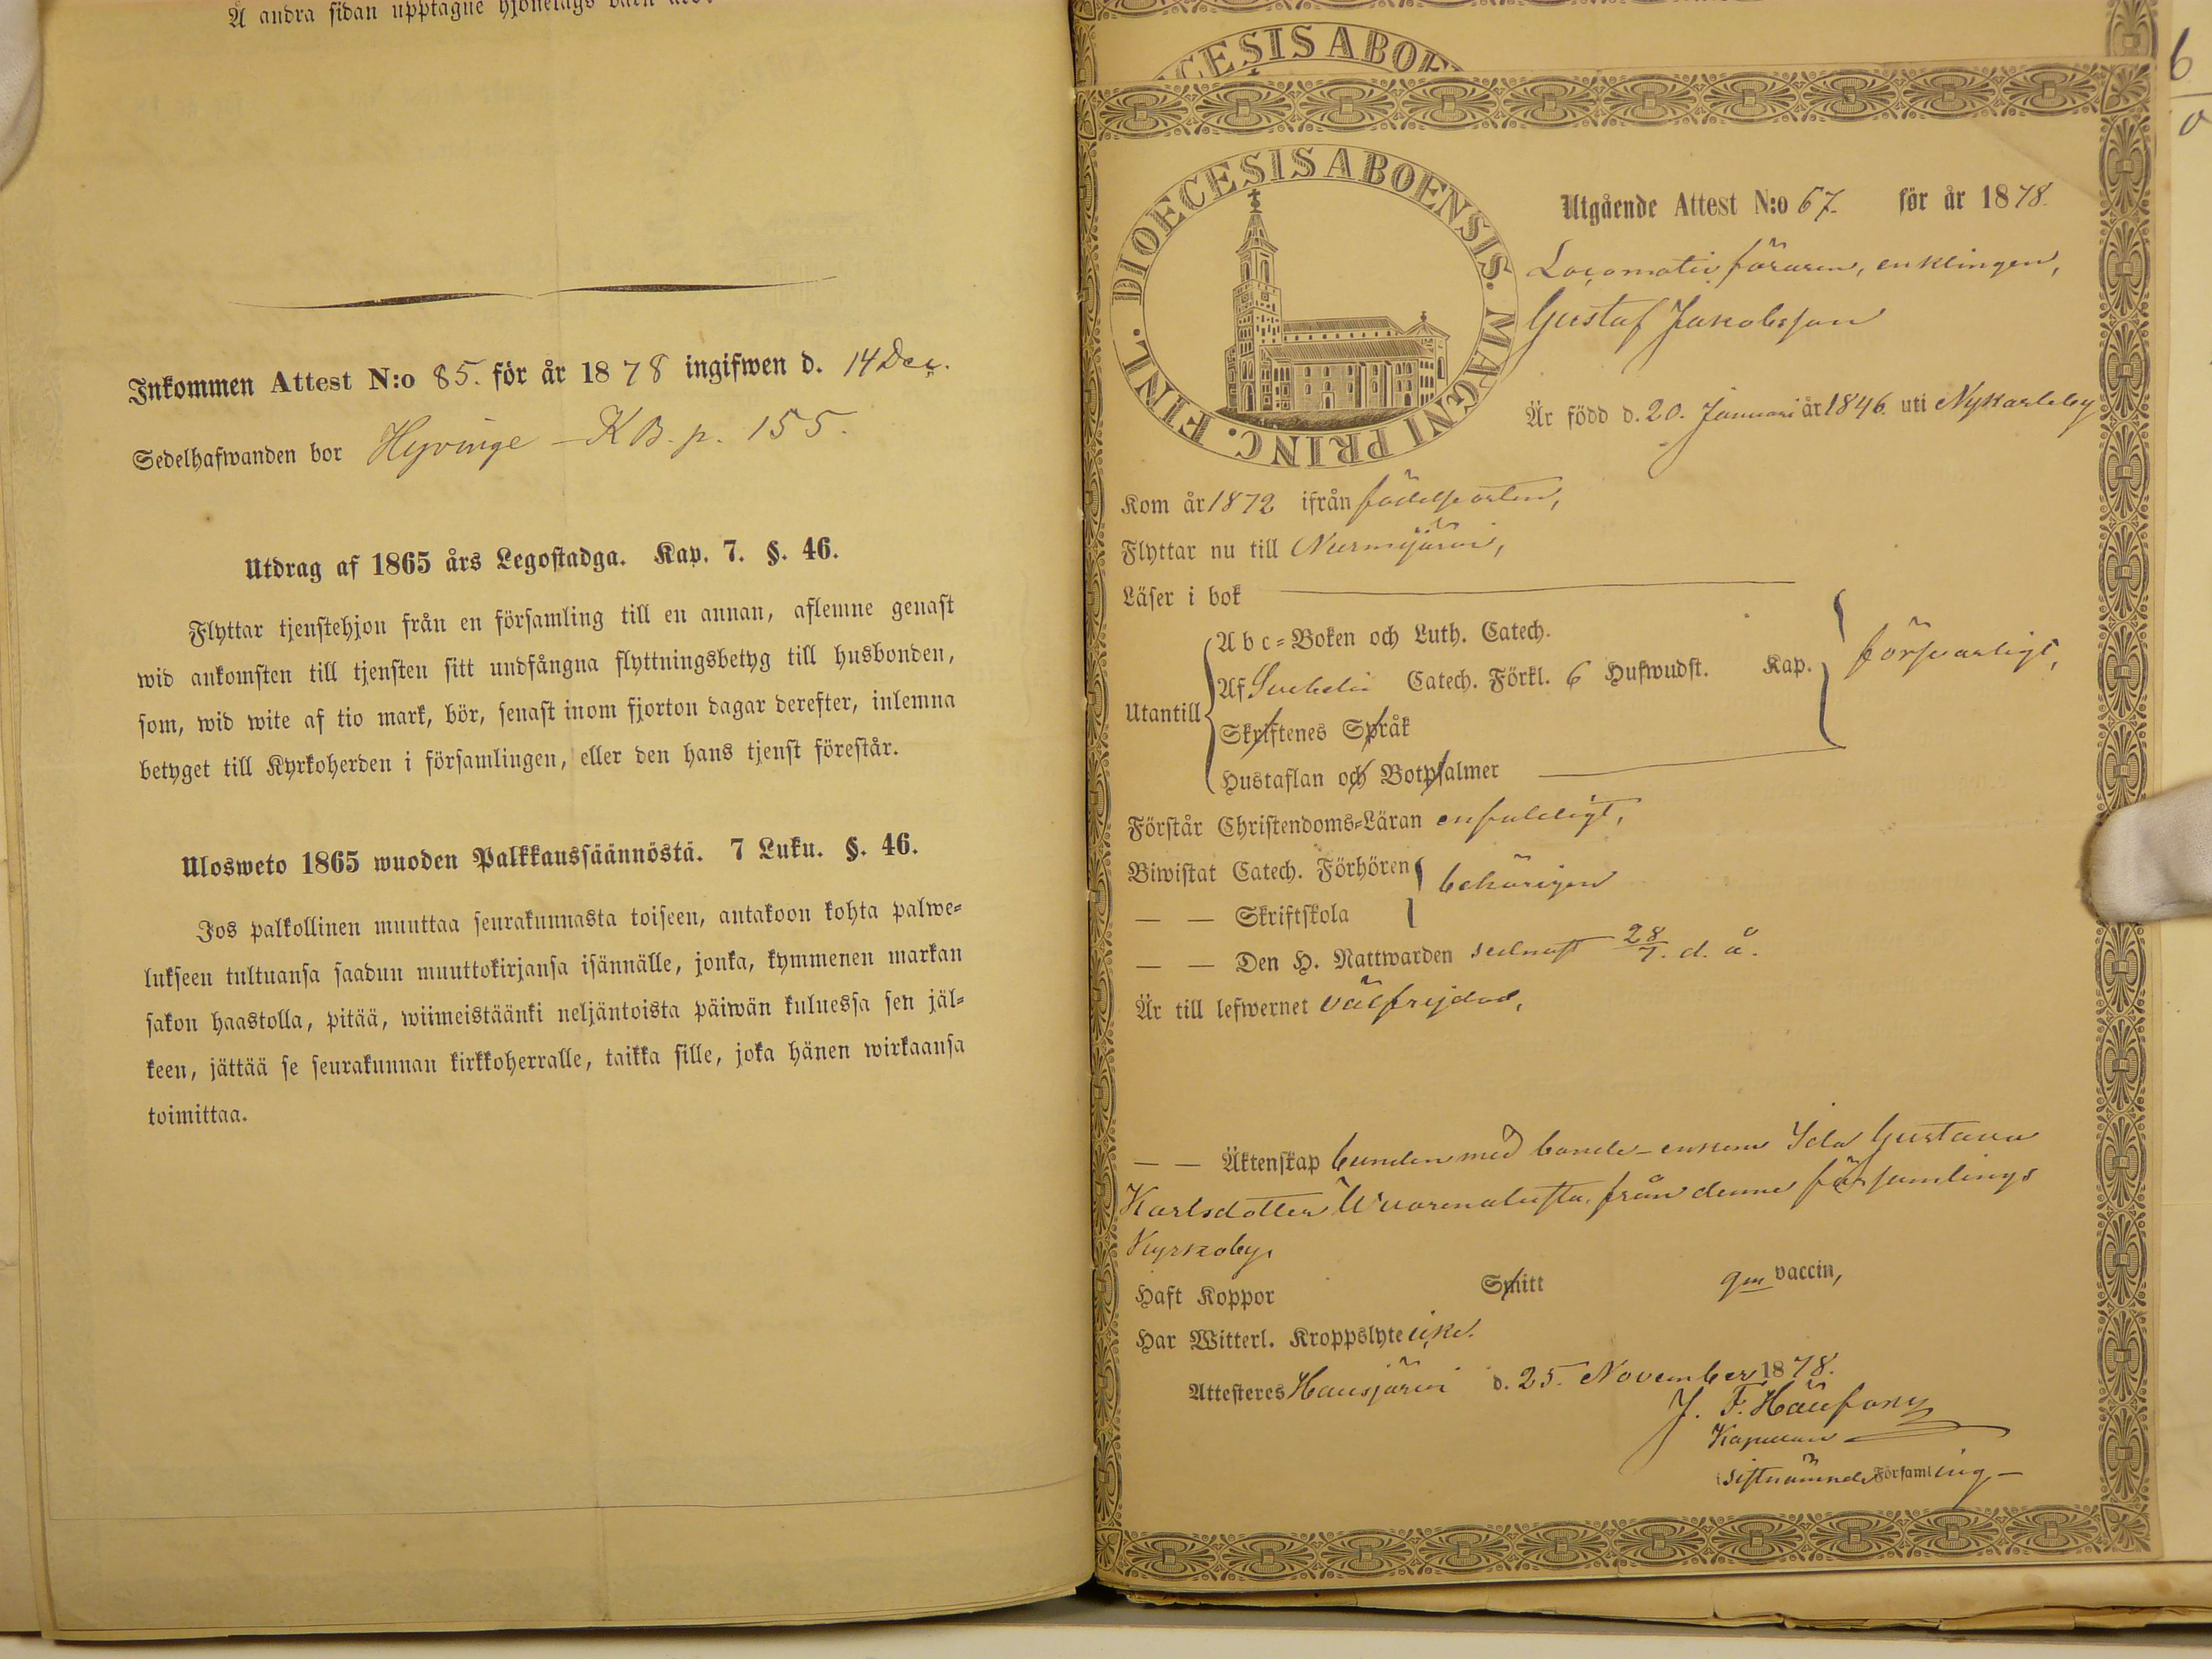 Å andra sidan upptagne hjonelags barn äro:
Inkommen Attest N:o 85. för år 1878 ingifwen d. 14 Dec.
Sedelhafwanden bor Hyvinge – KB. p. 155.
Utdrag af 1865 års Legostadga. Kap. 7. §. 46.
Flyttar tjenstehjon från en församling till en annan, aflemne genast
wid ankomsten till tjensten sitt undfångna flyttningsbetyg till husbonden,
som, wid wite af tio mark, bör, senast inom fjorton dagar derefter, inlemna
betyget till Kyrkoherden i församlingen, eller den hans tjenst förestår.
Ulosweto 1865 wuoden Palkkaussäännöstä. 7 Luku. §. 46.
Jos palkollinen muuttaa seurakunnasta toiseen, antakoon kohta palwe-
lukseen tultuansa saadun muuttokirjansa isännälle, jonka, kymmenen markan
sakon haastolla, pitää, wiimeistäänki neljäntoista päiwän kuluessa sen jäl-
keen, jättää se seurakunnan kirkkoherralle, taikka sille, joka hänen wirkaansa
toimittaa.
CESIS ABOE
DIOECESIS ABOENSIS. MAGNI PRINC. FINL.
Utgående Attest N:o 67. för år 1878.
Locomotiv föraren, enklingen,
Gustaf Jakobsson
Är född d. 20. Januari år 1846. uti Nykarleby
Kom år 1872 ifrån födelseorten,
Flyttar nu till Nurmijärvi,
Läser i bok
Abc-Boken och Luth. Catech.
Utantill Af Svebelii Catech. Förkl. 6 Hufwudst. Kap. försvarligt,
Skriftenes Språk
Hustaflan och Botpsalmer
Förstår Christendoms-Läran enfaldigt,
Biwistat Catech. Förhören behörigen
— — Skriftskola
— — Den H. Nattwarden sednast 28/7. d. å.
Är till lefwernet välfrejdad,
— — Äktenskap bunden med bonde-enkan Ida Gustava
Karlsdotter Wuorenalusta, från denna församlings
Kyrkoby.
Haft Koppor Smitt gm vaccin,
Har Witterl. Kroppslyte icke.
Attesteres Hausjärvi d. 25. November 1878.
J. F.
Kapellan
sistnämnde Församling –
6